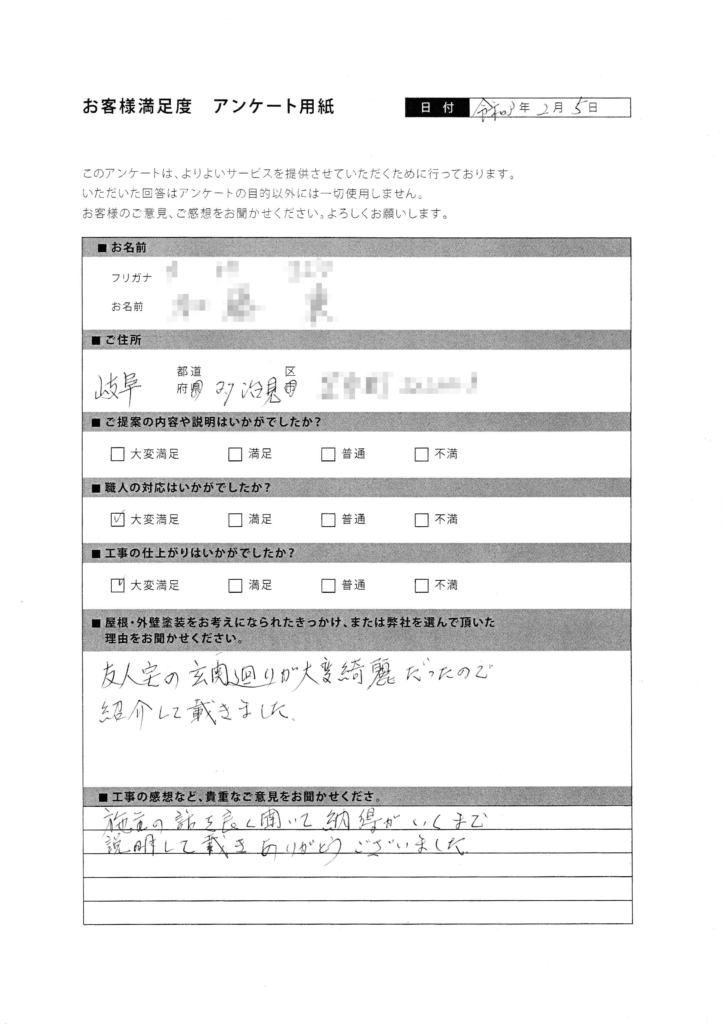 お客様満足度 アンケート用紙
日付 令和3年2月5日
このアンケートは、よりよいサービスを提供させていただくために行っております。
いただいた回答はアンケートの目的以外には一切使用しません。
お客様のご意見、ご感想をお聞かせください。よろしくお願いします。
■ お名前
フリガナ
お名前
■ ご住所
岐阜 都道府県 多治見 区市
■ ご提案の内容や説明はいかがでしたか?
□ 大変満足 □ 満足 □ 普通 □ 不満
■ 職人の対応はいかがでしたか?
☑ 大変満足 □ 満足 □ 普通 □ 不満
■ 工事の仕上がりはいかがでしたか?
☑ 大変満足 □ 満足 □ 普通 □ 不満
■ 屋根・外壁塗装をお考えになられたきっかけ、または弊社を選んで頂いた
理由をお聞かせください。
友人宅の玄関廻りが大変綺麗だったので
紹介して載きました。
■ 工事の感想など、貴重なご意見をお聞かせくださ。
施主の話を良く聞いて納得がいくまで
説明して載きありがとうございました。